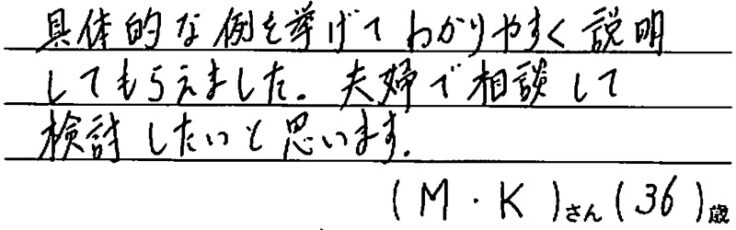 具体的な例を挙げてわかりやすく説明
してもらえました。夫婦で相談して
検討したいと思います。
(M・K)さん(36)歳